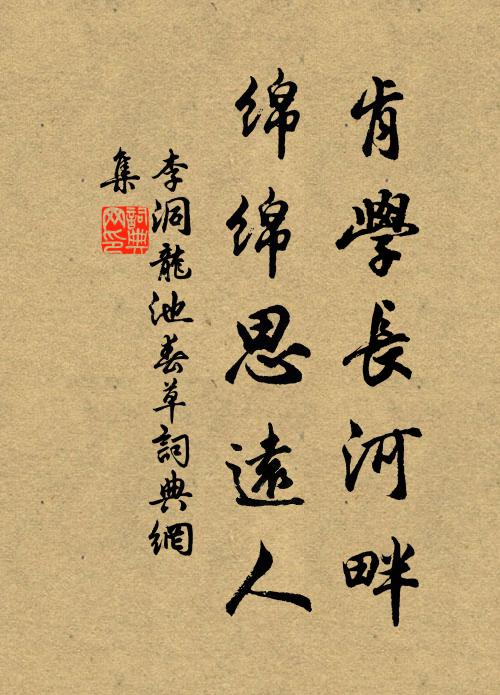 肯學長河畔
綿綿思遠人
李洞龍池春草詞典網
集
詞典
网印